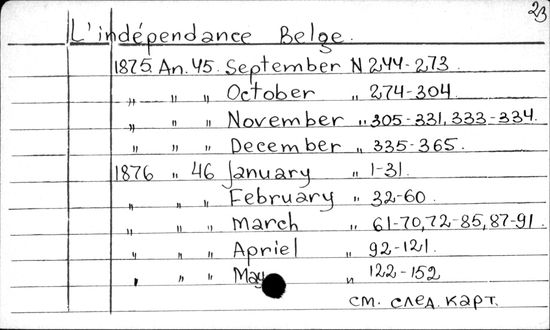 23
L'indépendance Belge.
1875. An. 45. September N 244-273
„ „ „ October „ 274-304.
„ „ „ November „ 305-331, 333-334.
„ „ „ December „ 335-365.
1876 „ 46 January „ 1-31.
„ „ „ February „ 32-60.
„ „ „ March „ 61-70, 72-85, 87-91.
„ „ „ Apriel „ 92-121.
„ „ „ May „ 122-152
см. след. карт.